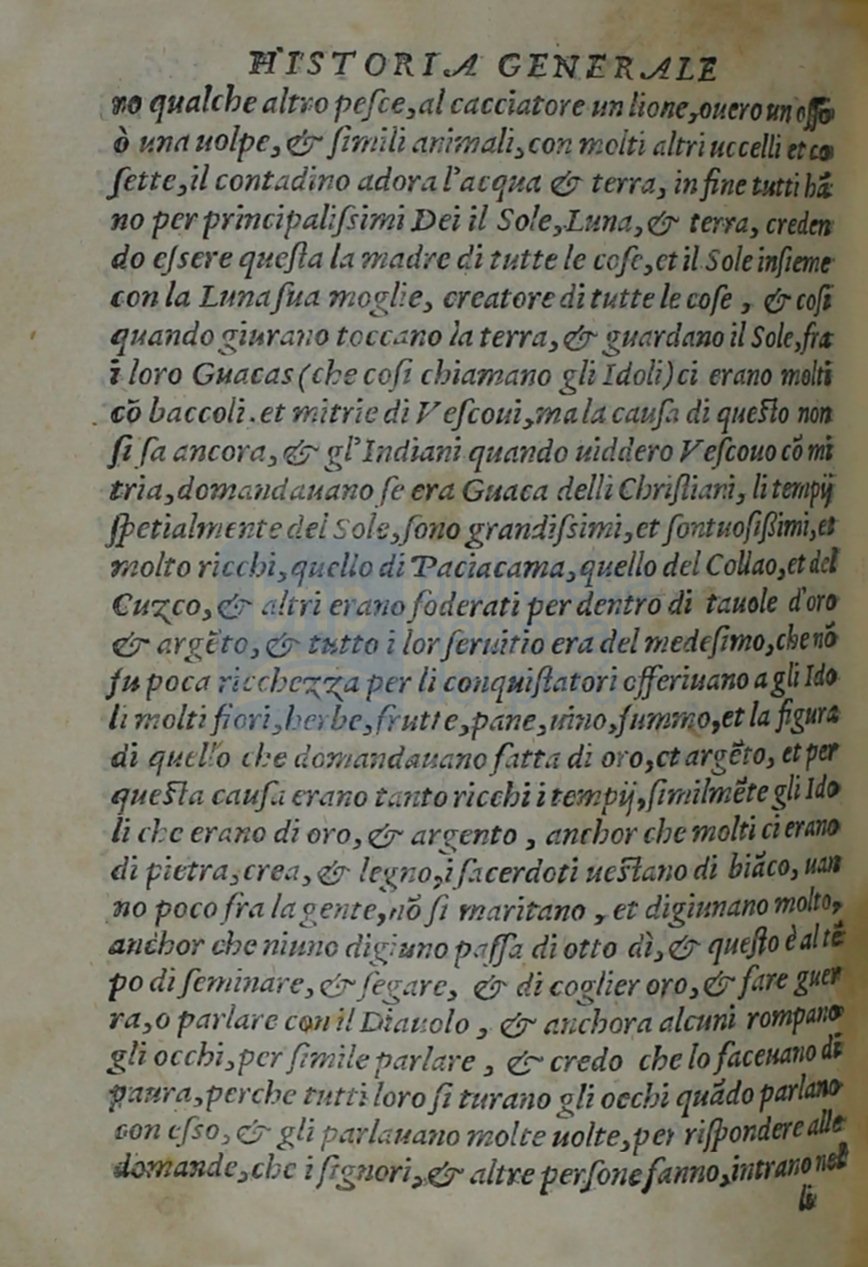 HISTORIA GENERALE
no qualche altro peſce, al cacciatore un lione, ouero un oſſo
ò una uolpe, & ſimili animali, con molti altri uccelli et co
ſette, il contadino adora l'acqua & terra, in fine tutti hã
no per principaliſsimi Dei il Sole, Luna, & terra, creden
do eſsere queſta la madre di tutte le coſe, et il Sole inſieme
con la Luna ſua moglie, creatore di tutte le coſe, & coſi
quando giurano toccano la terra, & guardano il Sole, fra
i loro Guacas (che coſi chiamano gli Idoli) ci erano molti
cõ baccoli. et mitrie di Veſcoui, ma la cauſa di queſto non
ſi ſa ancora, & gl'Indiani quando uiddero Veſcouo cõ mi
tria, domandauano ſe era Guaca delli Chriſtiani, li tempij
ſpetialmente del Sole, ſono grandiſsimi, et ſontuoſiſsimi, et
molto ricchi, quello di Paciacama, quello del Collao, et del
Cuzco, & altri erano foderati per dentro di tauole d'oro
& argẽto, & tutto i lor ſeruitio era del medeſimo, che nõ
fu poca ricchezza per li conquiſtatori offeriuano a gli Ido
li molti fiori, herbe, frutte, pane, uino, fummo, et la figura
di quello che domandauano fatta di oro, et argẽto, et per
queſta cauſa erano tanto ricchi i tempij, ſimilmẽte gli Ido
li che erano di oro, & argento, anchor che molti ci erano
di pietra, crea, & legno, i ſacerdoti ueſtano di biãco, uan
no poco fra la gente, nõ ſi maritano, et digiunano molto,
anchor che niuno digiuno paſſa di otto dì, & queſto è al tẽ
po di ſeminare, & ſegare, & di coglier oro, & fare guer
ra, o parlare con il Diauolo, & anchora alcuni rompano
gli occhi, per ſimile parlare, & credo che lo faceuano di
paura, perche tutti loro ſi turano gli occhi quãdo parlano
con eſso, & gli parlauano molte uolte, per riſpondere alle
domande, che i ſignori, & altre perſone fanno, intrano nel
li